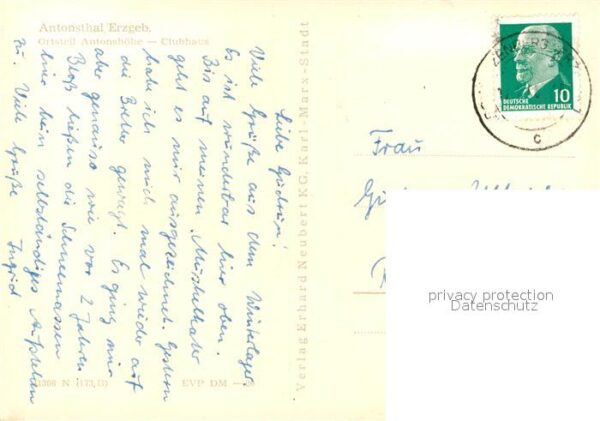 Antonsthal Erzgeb.
Ortsteil Antonshöhe — Clubhaus
Liebe Gudrun!
Viele Grüße aus dem Winterlager.
Es ist wunderbar hier oben.
Bis auf meinen Muskelkater
geht es mir ausgezeichnet. Gestern
habe ich mich mal wieder auf
die Bretter gewagt. Es ging mir
aber genauso wie vor 2 Jahren.
Bloß ließen die Schneemassen
hier kein selbständiges Aufstehen
zu. Viele Grüße Ingrid
EVP DM
Verlag Erhard Neubert KG, Karl-Marx-Stadt
10
DEUTSCHE
DEMOKRATISCHE REPUBLIK
c
Frau
privacy protection
Datenschutz